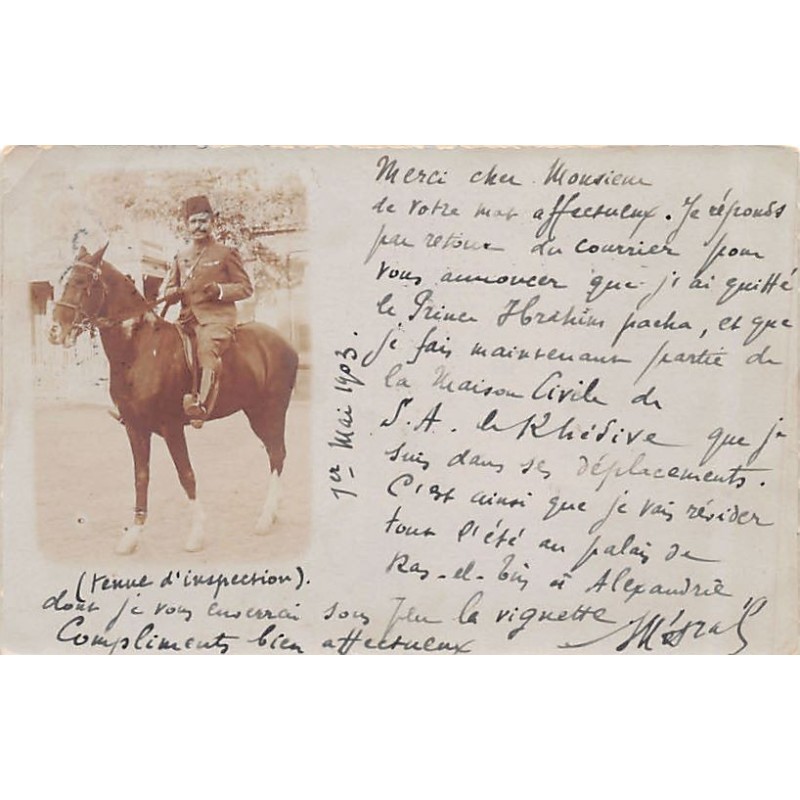 Merci cher Monsieur
de votre mot affectueux. Je réponds
par retour du courrier pour
vous annoncer que j'ai quitté
le Prince Ibrahim pacha, et que
je fais maintenant partie de
la Maison Civile de
S.A. le Khédive que je
suis dans ses déplacements.
C'est ainsi que je vais résider
tout l'été au palais de
Ras-el-Tin à Alexandrie
dont je vous enverrai sous peu la vignette
Compliments bien affectueux
1er Mai 1903.
(tenue d'inspection).